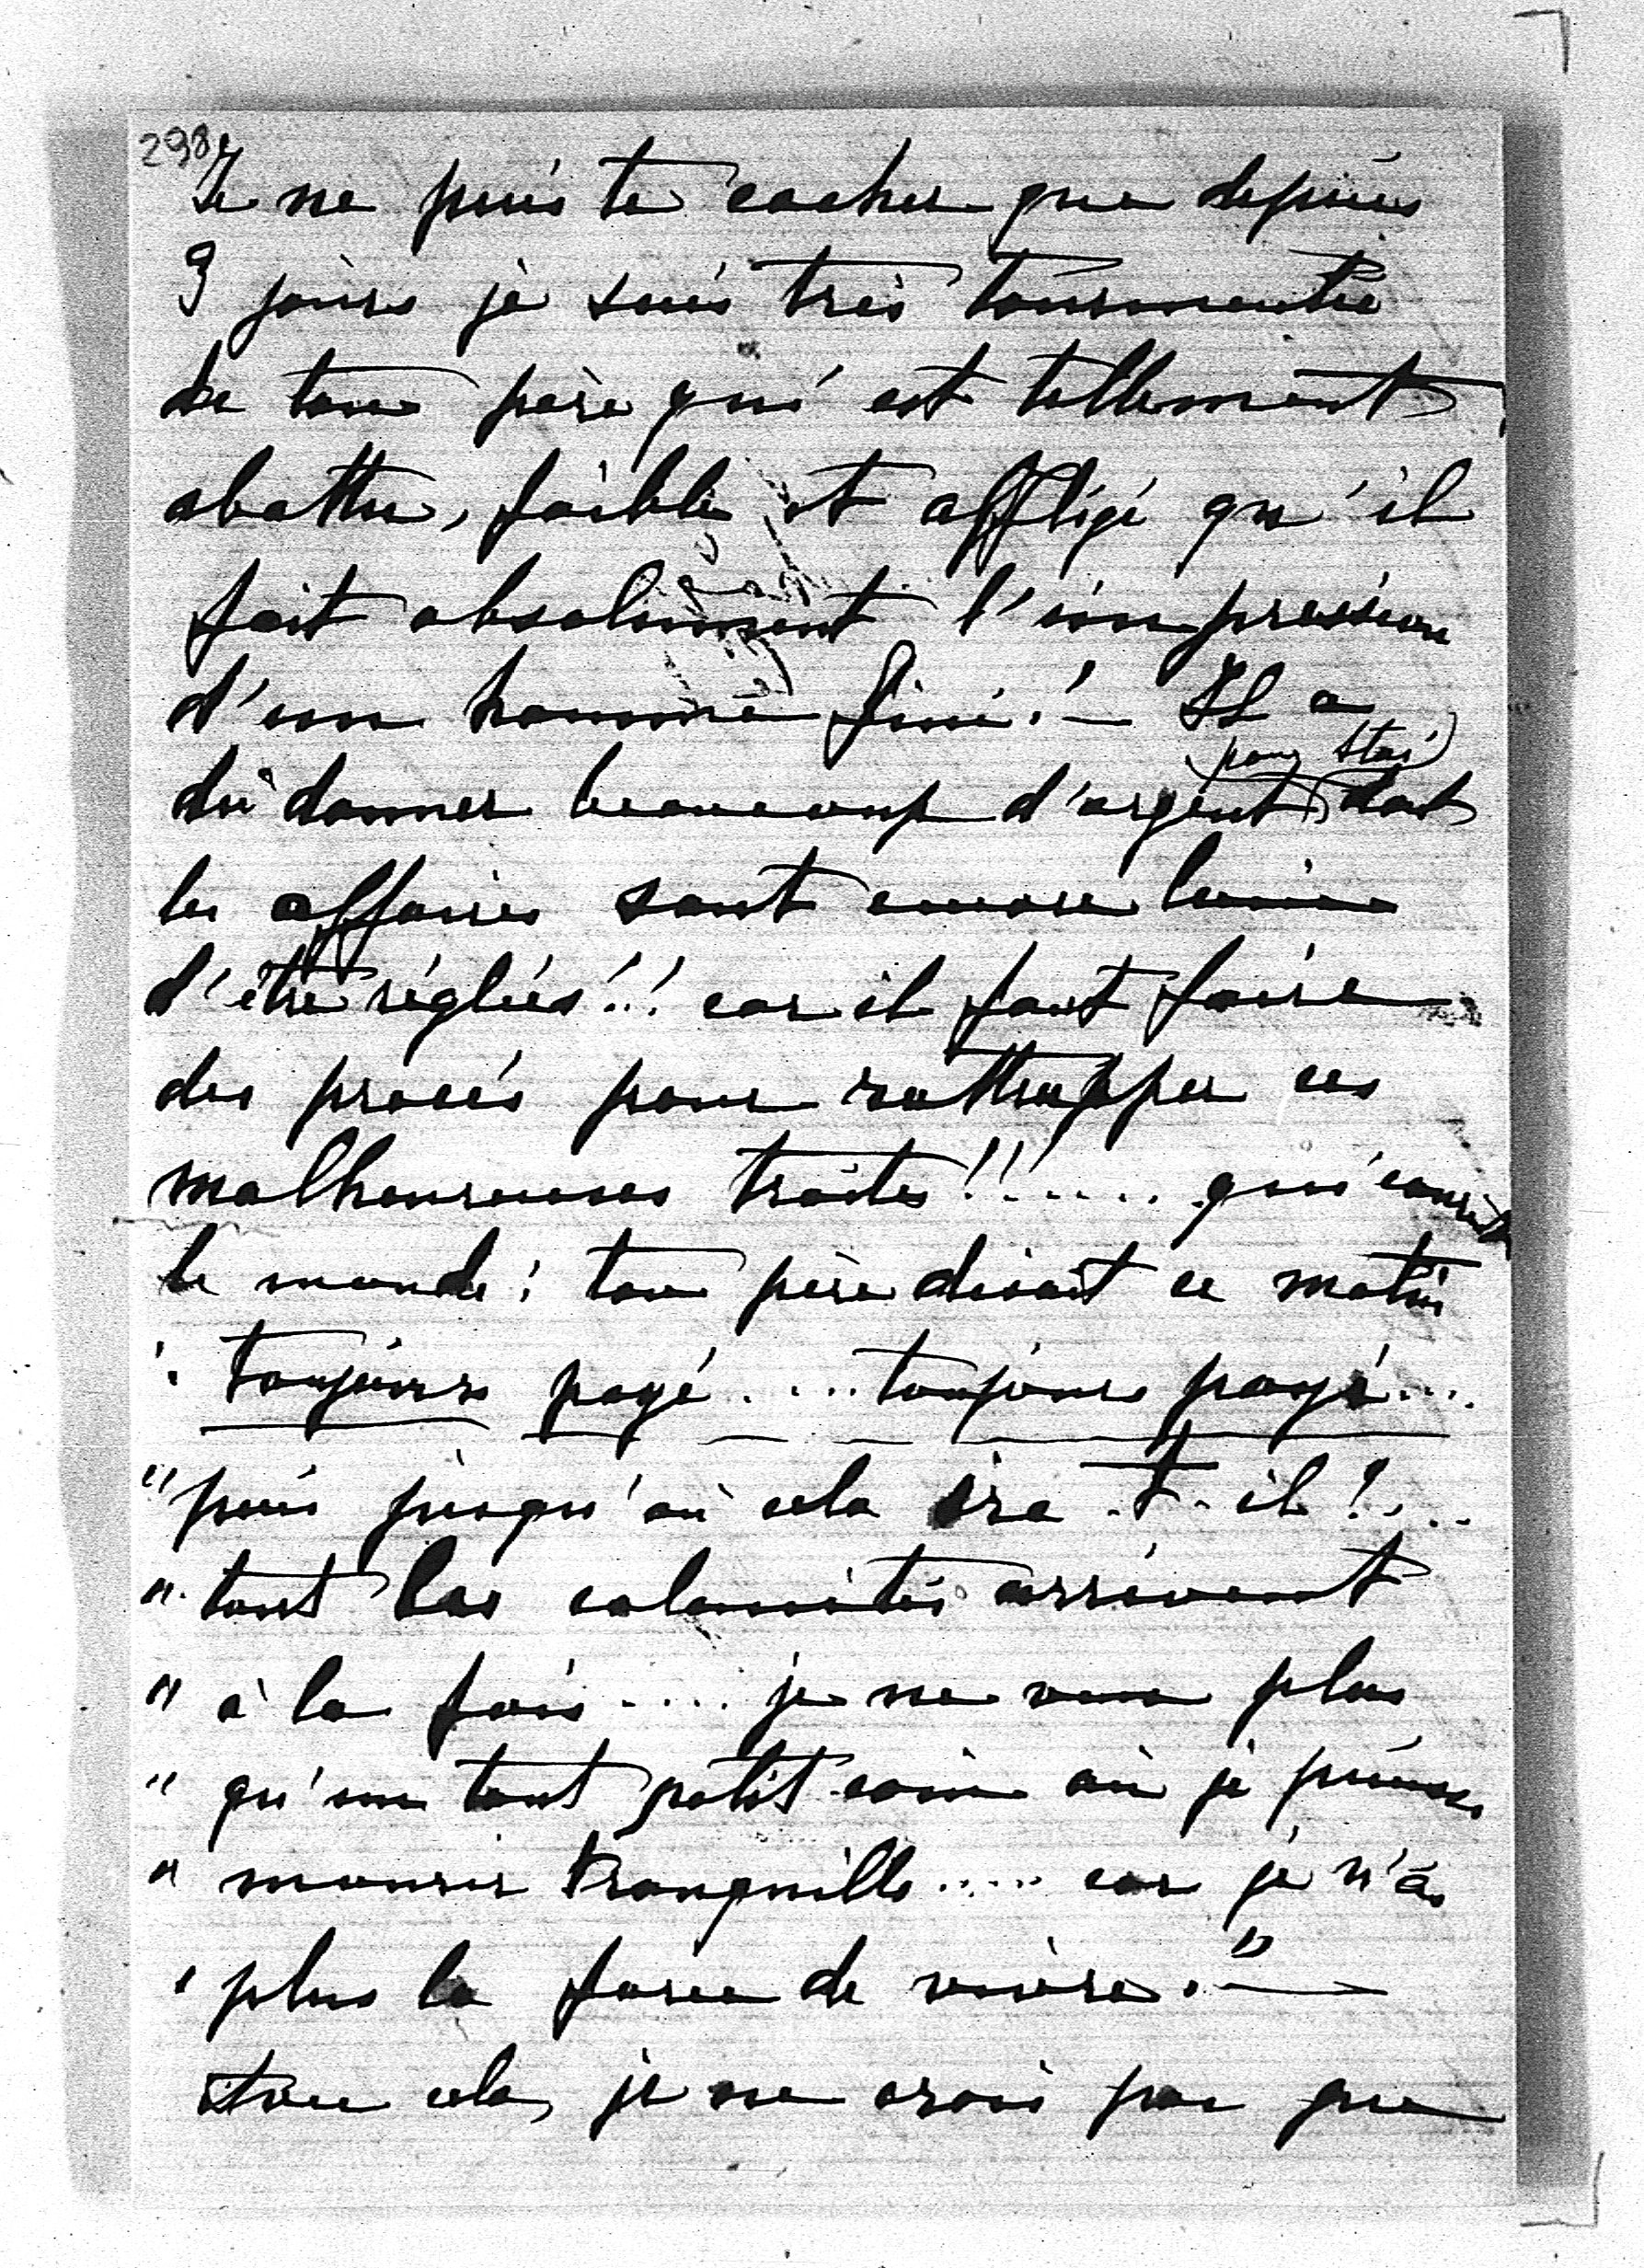 298
Je ne puis te cacher que depuis
3 jours je suis très tourmentée
de ton père qui est tellement
abattu, faible et affligé qu'il
fait absolument l'impression
d'un homme fini! — Il a
(pour Staï)
dû donner beaucoup d'argent dont
les affaires sont encore loin
d'être réglées!! car il faut faire
des procès pour rattrapper ces
malheureuses traites!!...... qui courent
le monde; ton père disait ce matin
" toujours payé .... toujours payé...
" puis jusqu'où cela ira-t-il!...
" tout les calamités arrivent
" à la fois .... je ne veux plus
" qu'un tout petit coin où je puisse
" mourir tranquille ..... car je n'ai
" plus la force de vivre." —
cela, je ne crois pas que